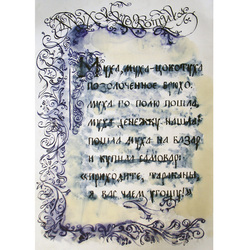 Муха, муха-цокотуха
позолоченное брюхо.
Муха по полю пошла,
муха денежку нашла.
Пошла муха на базар
и купила самовар:
«приходите, тараканы,
я вас чаем угощу!»